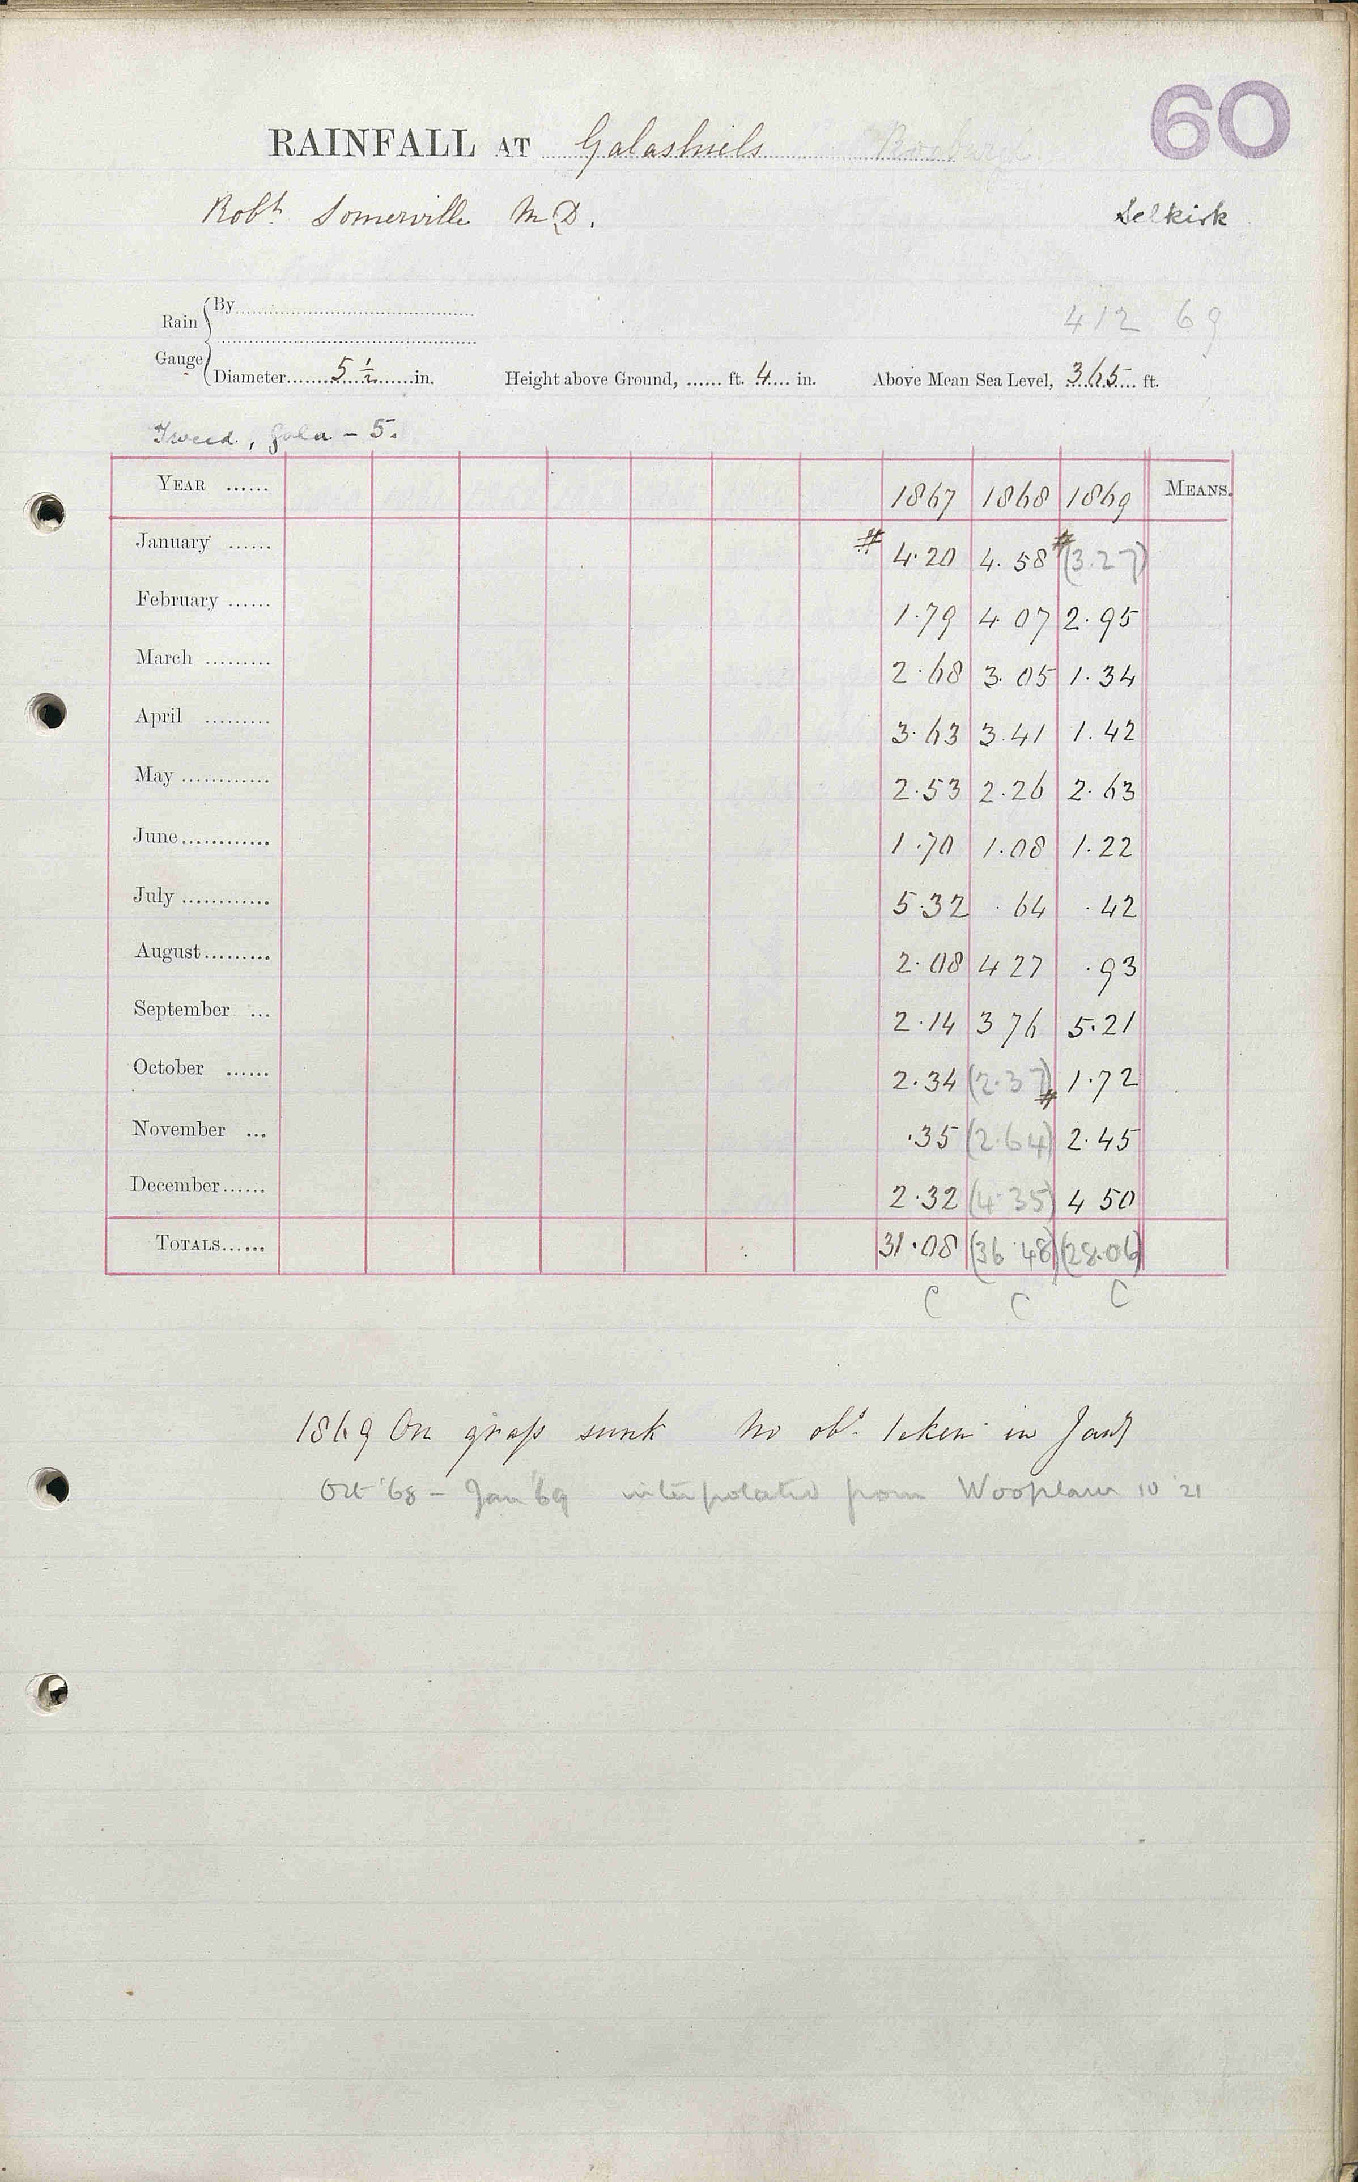 60
RAINFALL AT Galashiels Roxburgh
Robt. Somerville M.D.
Selkirk
Rain Gauge
By
412 69
Diameter 5 1/2 in. Height above Ground, ...... ft. 4 in. Above Mean Sea Level, 365 ft.
Tweed, Gala - 5.
YEAR ...... 1867 1868 1869 MEANS.
January ...... # 4.20 4.58 # (3.27)
February ...... 1.79 4 07 2.95
March ......... 2.68 3.05 1.34
April ......... 3.63 3.41 1.42
May ............ 2.53 2.26 2.63
June ............ 1.70 1.08 1.22
July ............ 5.32 .64 .42
August ......... 2.08 4 27 .93
September ... 2.14 3 76 5.21
October ...... 2.34 (2.37) # 1.72
November ... .35 (2.64) 2.45
December ...... 2.32 (4.35) 4 50
TOTALS ...... 31.08 (36.48) (28.06)
C C C
1869 On grass sunk No obs. taken in Jany
Oct '68 - Jan '69 interpolated from Wooplaw 10 '21